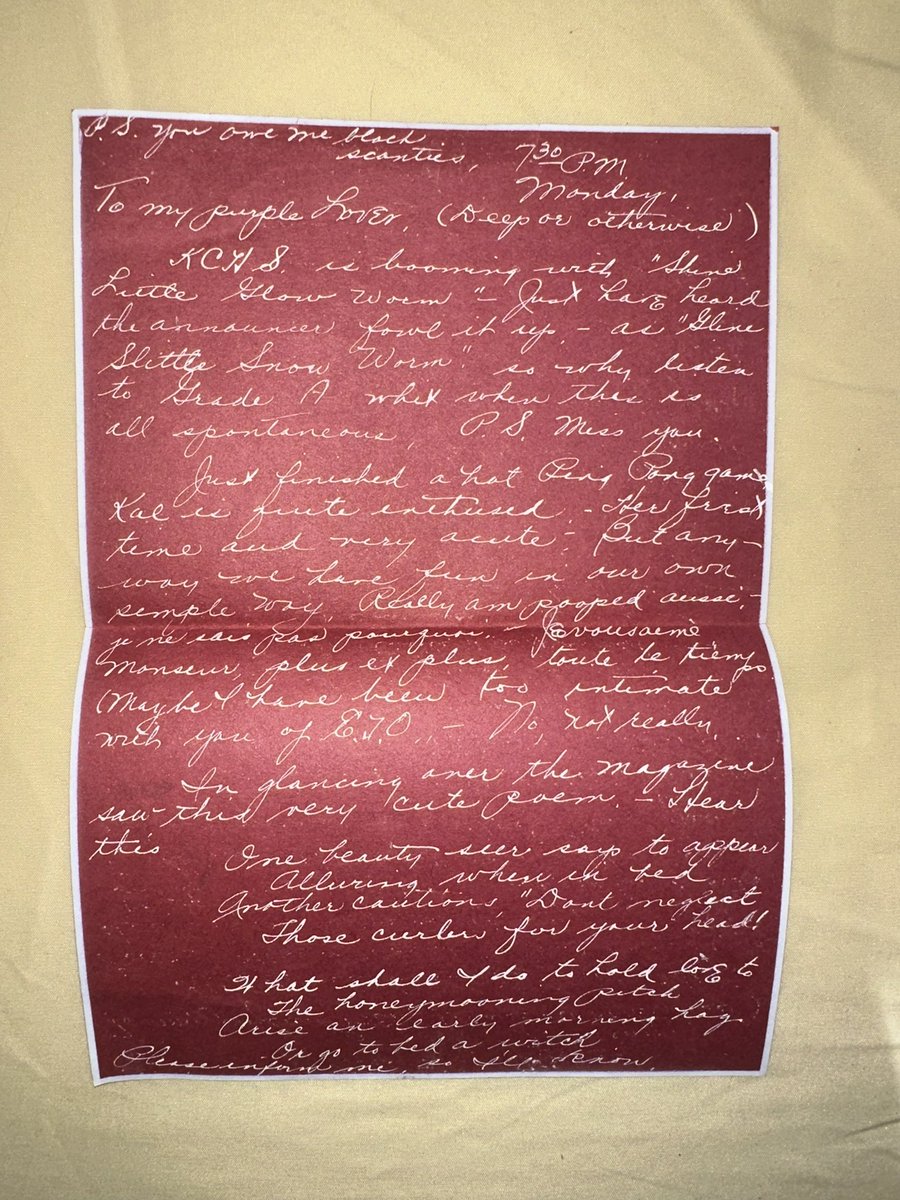 P.S. You owe me black
scanties,
7:30 P.M.
Monday,
To my purple Lover, (Deep or otherwise)
KCHS. is booming with "Shine
Little Glow Worm" - Just have heard
the announcer fowl it up, - as "Gline
Slittle Snow Worm" so why listen
to Grade A when this is
all spontaneous. P.S. Miss you.
Just finished a hot Ping Pong game,
Kae is quite enthused, - Her first
time and very acute, - But any-
way we have fun in our own
semple way, Really am pooped aussi, -
je ne sais pas pourquoi. - Je vous aeme
Monseur, plus et plus, toute le tiemps.
(Maybe I have been too intimate
with you of E.T.O., - No, not really.
In glancing over the magazine
saw this very cute poem. - Hear
this
One beauty seer says to appear
Alluring when in bed
Another cautions, "Dont neglect
Those curlers for your head!
What shall I do to hold love to
The honeymooning pitch
Arise an early morning hag
Or go to bed a witch
Please inform me, so I'll know.